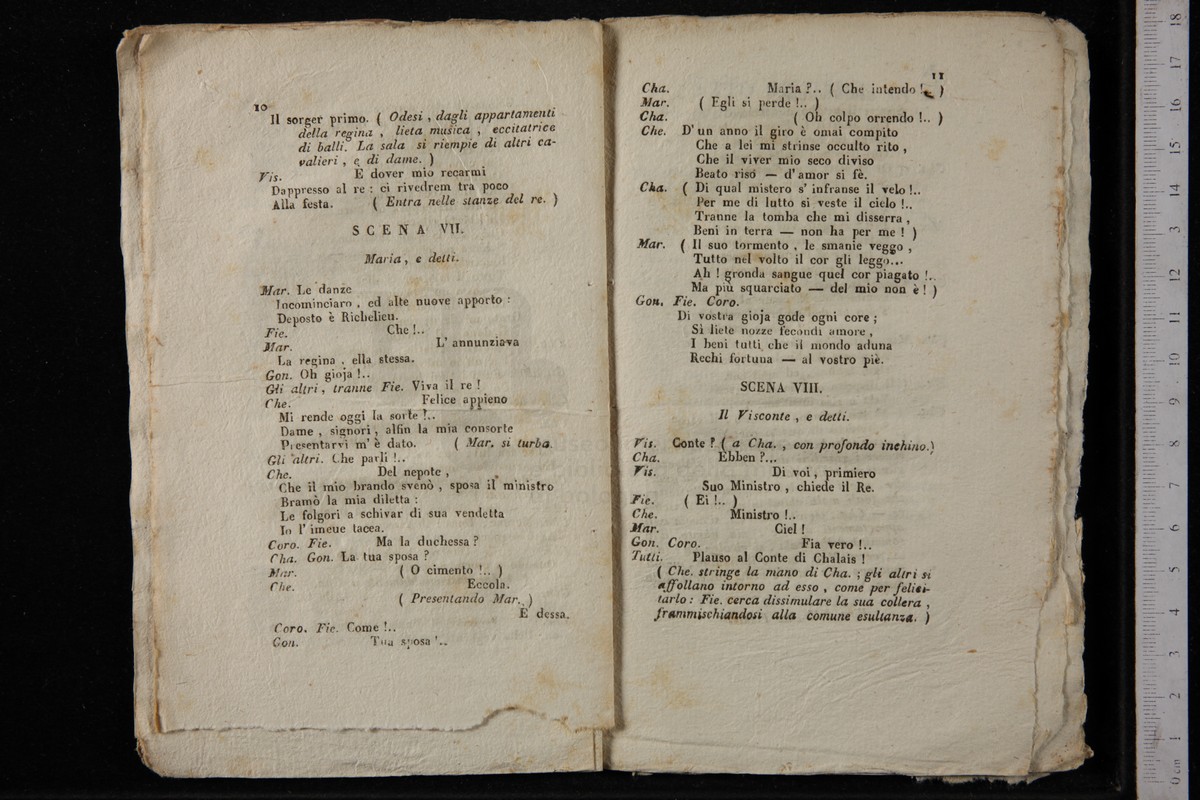 10
Il sorger primo. ( Odesi , dagli appartamenti
della regina , lieta musica , eccitatrice
di balli. La sala si riempie di altri ca-
valieri , e di dame. )
Vis. E dover mio recarmi
Dappresso al re : ci rivedrem tra poco
Alla festa. ( Entra nelle stanze del re. )
SCENA VII.
Maria , e detti.
Mar. Le danze
Incominciaro , ed alte nuove apporto :
Deposto è Richelieu.
Fie. Che !..
Mar. L' annunziava
La regina . ella stessa.
Gon. Oh gioja !..
Gli altri , tranne Fie. Viva il re !
Che. Felice appieno
Mi rende oggi la sorte !..
Dame , signori , alfin la mia consorte
Presentarvi m' è dato. ( Mar. si turba.
Gli altri. Che parli !..
Che. Del nepote ,
Che il mio brando svenò , sposa il ministro
Bramò la mia diletta :
Le folgori a schivar di sua vendetta
Io l' imene tacea.
Coro. Fie. Ma la duchessa ?
Cha. Gon. La tua sposa ?
Mar. ( O cimento !.. )
Che. Eccola.
( Presentando Mar. )
E dessa.
Coro. Fie. Come !..
Gon. Tua sposa !..
11
Cha. Maria ?.. ( Che intendo !.. )
Mar. ( Egli si perde !.. )
Cha. ( Oh colpo orrendo !.. )
Che. D' un anno il giro è omai compito
Che a lei mi strinse occulto rito ,
Che il viver mio seco diviso
Beato riso — d' amor si fè.
Cha. ( Di qual mistero s' infranse il velo !..
Per me di lutto si veste il cielo !..
Tranne la tomba che mi disserra ,
Beni in terra — non ha per me ! )
Mar. ( Il suo tormento , le smanie veggo ,
Tutto nel volto il cor gli leggo...
Ah ! gronda sangue quel cor piagato !..
Ma più squarciato — del mio non è ! )
Gon. Fie. Coro.
Di vostra gioja gode ogni core ;
Sì liete nozze fecondi amore ,
I beni tutti che il mondo aduna
Rechi fortuna — al vostro piè.
SCENA VIII.
Il Visconte , e detti.
Vis. Conte ? ( a Cha. , con profondo inchino.)
Cha. Ebben ?...
Vis. Di voi , primiero
Suo Ministro , chiede il Re.
Fie. ( Ei !.. )
Che. Ministro !..
Mar. Ciel !
Gon. Coro. Fia vero !..
Tutti. Plauso al Conte di Chalais !
( Che. stringe la mano di Cha. ; gli altri si
affollano intorno ad esso , come per felici-
tarlo : Fie. cerca dissimulare la sua collera ,
frammischiandosi alla comune esultanza. )
0 cm 1 2 3 4 5 6 7 8 9 10 11 12 13 14 15 16 17 18